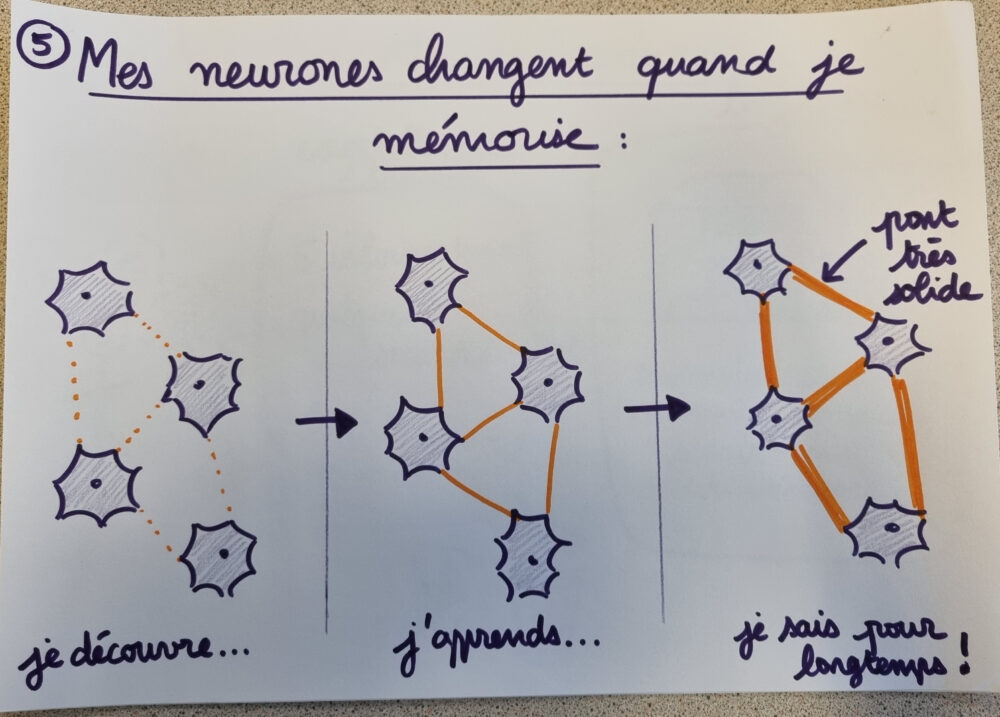 5 Mes neurones changent quand je
mémorise :
pont
très
solide
je découvre...
j'apprends...
je sais pour
longtemps !